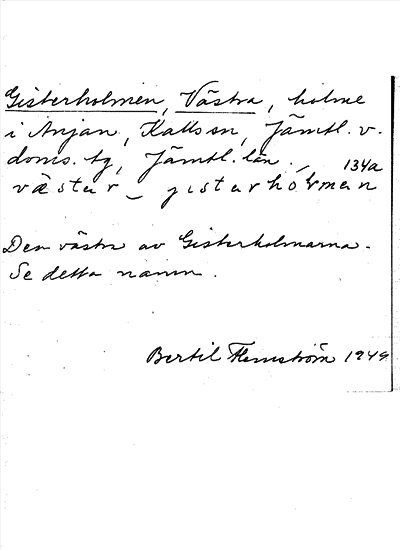 Gisterholmen, Västra, holme
i Anjan, Kalls sn, Jämtl. v.
doms. tg, Jämtl. län. 134a
västur _ jısturhólmen
Den västra av Gisterholmarna.
Se detta namn.
Bertil Flemström 1949